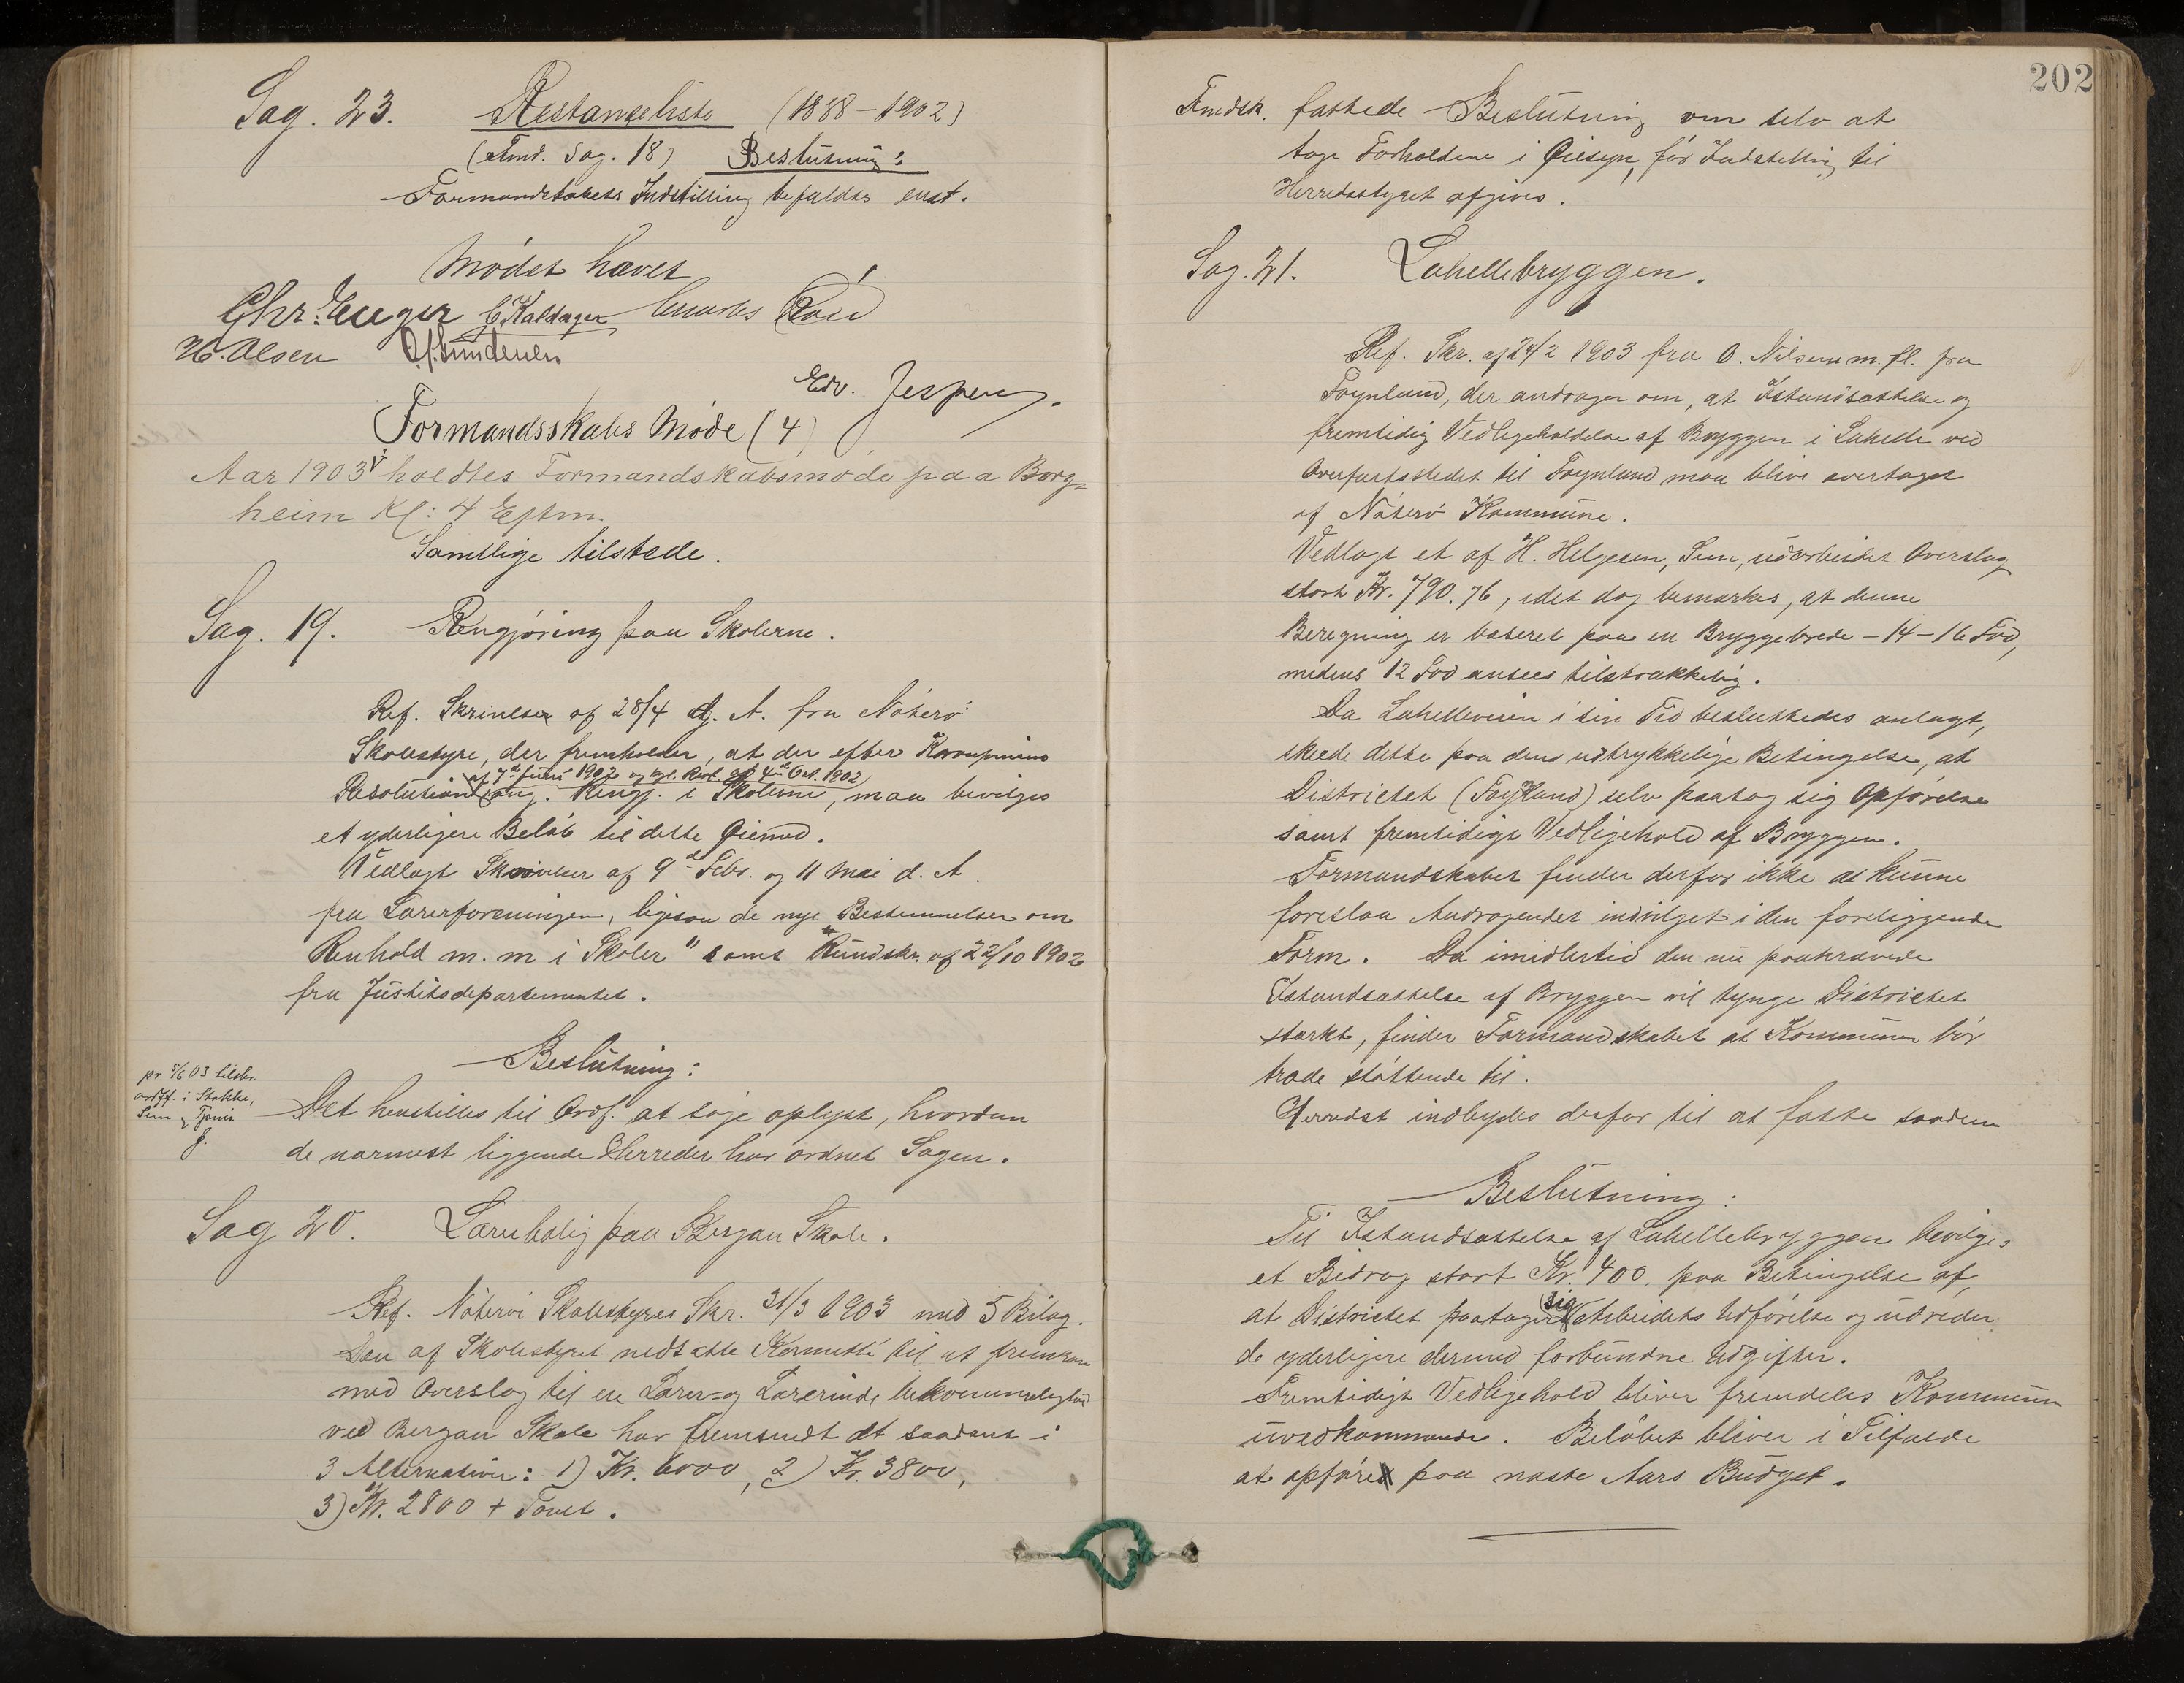 Sag. 23. Restanseliste (1888-1902)
(Fmd. Sag. 18) Beslutning:
Formandskabets Indstilling befaldes enst.
Mødet hævet
Chr. Unger C Kaldager
H. Olsen
Edv. Jespersen.
Formandsskabs Møde (4)
Aar 1903 holdtes Formandskabsmøde paa Borg=
heim Kl: 4 Eftm.
Samtlige tilstede.
Sag. 19. Rengjøring paa Skolerne.
Ref. Skrivelse af 28/4 d. A. fra Nøterø
Skolestyre, der fremholder, at der efter Kronprins
af 4de Juni 1902 og kgl. Resl. af 4de Oct. 1902
Resolution ang. Rengj. i Skolerne, maa bevilges
et yderligere Beløb til dette Øiemed.
Vedlagt Skrivelser af 9de Febr. og 11 Mai d. A.
fra Lærerforeningen, ligesom de nye "Bestemmelser om
Renhold m. m i Skoler" samt Rundskr. af 22/10 1902
fra Justitsdepartementet.
Beslutning:
pr. 5/6 03 tilskr.
ordff. i Stokke,
Sem og Tjømø
J.
Det henstilles til Ordf. at søge oplyst, hvordan
de nærmest liggende Herreder har ordnet Sagen.
Sag 20. Lærerbolig paa Bergan Skole.
Ref. Nøterø Skolestyres Skr. 31/3 1903 med 5 Bilag.
Den af Skolestyret nedsatte Komitte til at fremkom
med Overslag til en Lærer= og Lærerinde bekvemmelighed
ved Bergan Skole har fremsendt et saadant i
3 Alternativer: 1) Kr. 6000, 2) Kr. 3800,
3) Kr. 2800 + Tomt.
202
Fmdsk. fattede Beslutning om selv at
tage Forholdene i Øiesyn, før Indstilling til
Herredsstyret afgives.
Sag. 21. Lahellebryggen.
Ref. Skr. af 24/2 1903 fra O. Nilsen m. fl. fra
Føynland, der andrager om, at Istandsættelse og
fremtidig Vedligeholdelse af Bryggen i Lahelle ved
Overfartsstedet til Føynland maa blive overtaget
af Nøterø Kommune.
Vedlagt et af H. Helgesen, Sem, udarbeidet Overslag
stort Kr. 790.76, idet dog bemærkes, at denne
Beregning er baseret paa en Bryggebrede - 14-16 Fod,
medens 12 Fod ansees tilstrækkelig.
Da Lahelleveien i sin Tid besluttedes anlagt,
skede dette paa den udtrykkelige Betingelse, at
Districtet (Føynland) selv paatog sig Opførelse
samt fremtidige Vedligehold af Bryggen.
Formandskabet finder derfor ikke at kunne
foreslaa Andragendet indvilget i den foreliggende
Form. Da imidlertid den nu paakrævede
Istandsættelse af Bryggen vil tynge Districtet
stærkt, finder Formandskabet at Kommunen bør
træde støttende til.
Herredst indbydes derfor til at fatte saadan
Beslutning:
Til Istandsættelse af Lahellebryggen bevilges
et Bidrag stort Kr. 400, paa Betingelse af,
at Districtet paatager sig Arbeidets Udførelse og udreder
de yderligere dermed forbundne Udgifter.
Fremtidigt Vedligehold bliver fremdeles Kommunen
uvedkommende. Beløbet bliver i Tilfælde
at opføre paa næste Aars Budget.